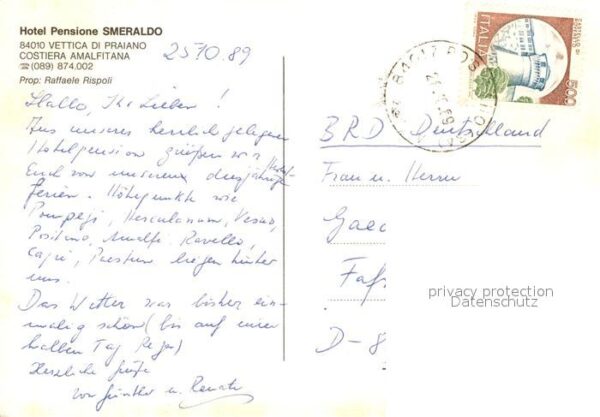 Hotel Pensione SMERALDO
84010 VETTICA DI PRAIANO
COSTIERA AMALFITANA
☎(089) 874.002
Prop: Raffaele Rispoli
25 10. 89
Hallo, Ihr Lieben!
Aus unserer herrlich gelegenen
Hotelpension grüßen wir
Euch von unseren diesjährigen Herbst-
ferien. Höhepunkte wie
Pompeji, Herculanum, Vesuv,
Positano, Amalfi, Ravello,
Capri, Paestum liegen hinter
uns.
Das Wetter war bisher ein-
malig schön (bis auf einen
halben Tag Regen)
Herzliche Grüße
von Günther u. Renate
ITALIA
500
BRD Deutschland
Frau u. Herrn
Gae
Faf
D-8
privacy protection
Datenschutz